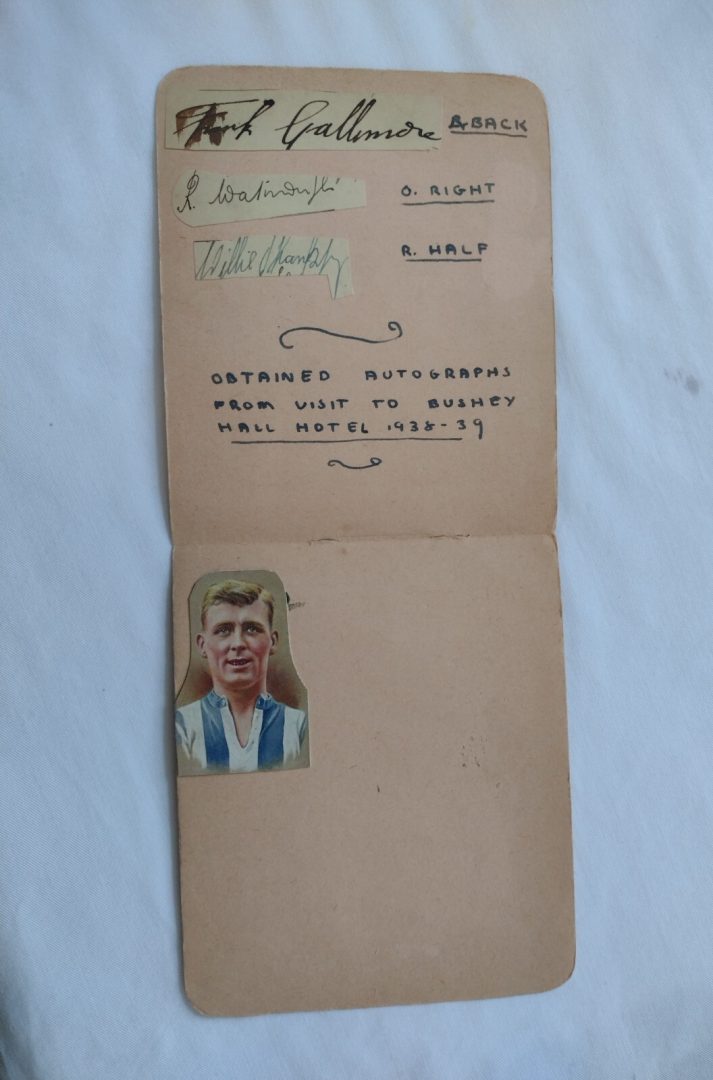 Frank Gallimore BACK
R. O. RIGHT
Willie Shankly R. HALF
OBTAINED AUTOGRAPHS
FROM VISIT TO BUSHEY
HALL HOTEL 1938-39